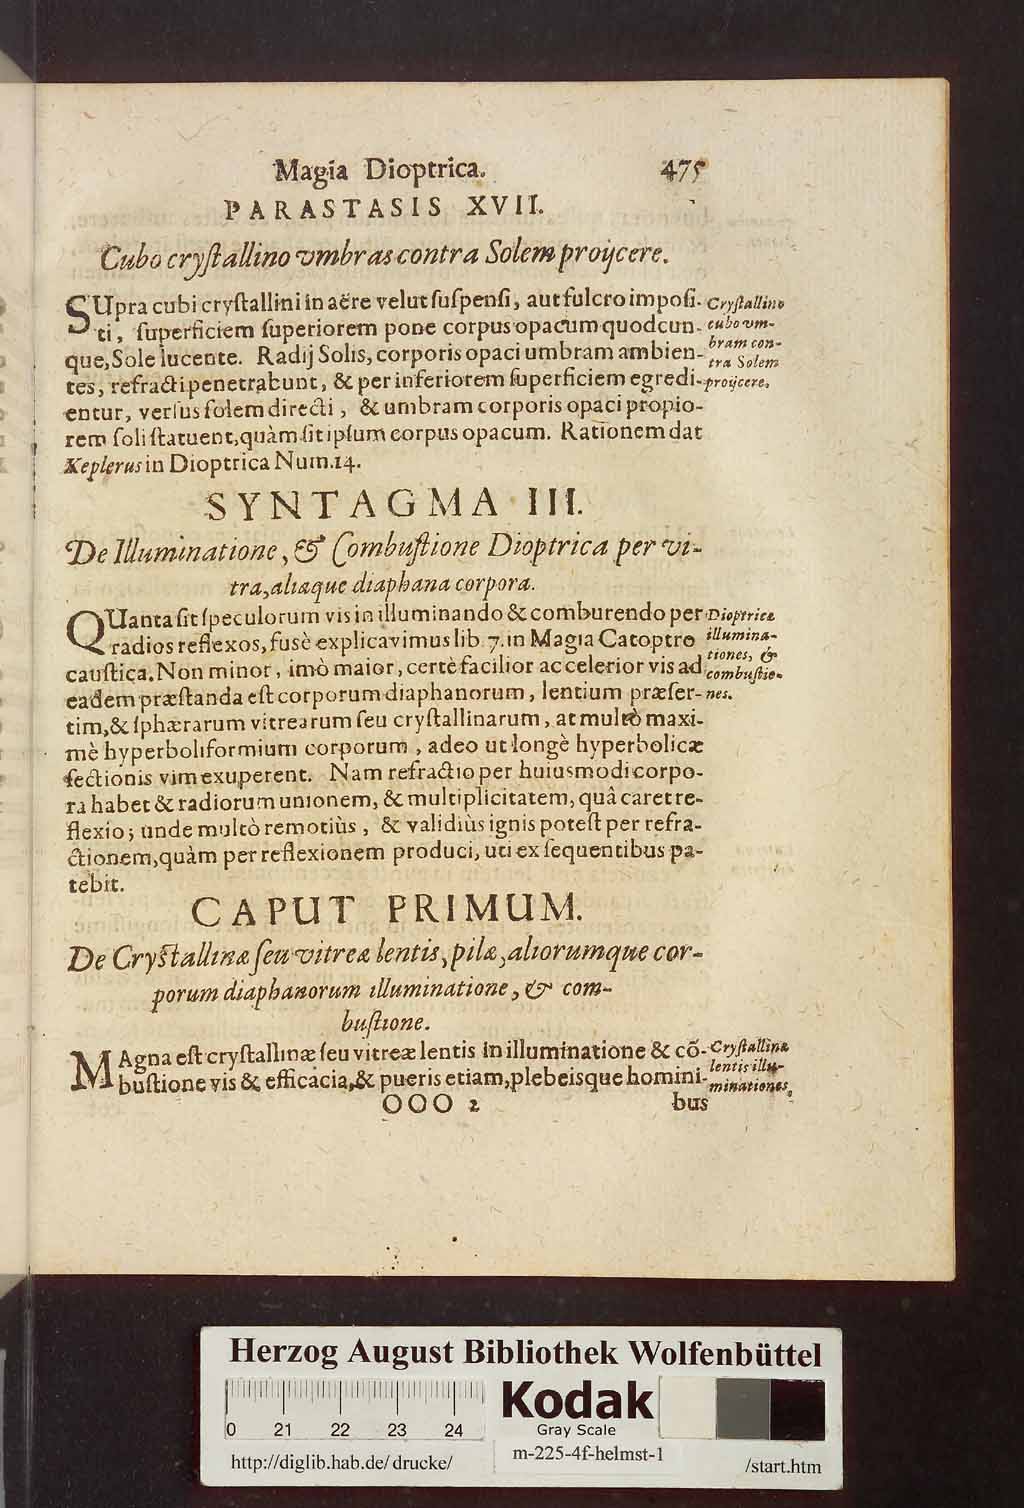 Magia Dioptrica. 475
PARASTASIS XVII.
Cubo cryſtallino vmbras contra Solem proijcere.
SUpra cubi cryſtallini in aëre velut ſuſpenſi, aut fulcro impoſi-
ti, ſuperficiem ſuperiorem pone corpus opacum quodcun-
que, Sole lucente. Radij Solis, corporis opaci umbram ambien-
tes, refracti penetrabunt, & per inferiorem ſuperficiem egredi-
entur, verſus ſolem directi, & umbram corporis opaci propio-
rem ſoli ſtatuent, quàm ſit ipſum corpus opacum. Rationem dat
Keplerus in Dioptrica Num. 14.
Cryſtallino
cubo vm-
bram con-
tra Solem
proijcere.
SYNTAGMA III.
De Illuminatione, & Combuſtione Dioptrica per vi-
tra, aliaque diaphana corpora.
QUanta ſit ſpeculorum vis in illuminando & comburendo per
radios reflexos, fusè explicavimus lib. 7. in Magia Catoptro
cauſtica. Non minor, imò maior, certè facilior ac celerior vis ad
eadem præſtanda eſt corporum diaphanorum, lentium præſer-
tim, & ſphærarum vitrearum ſeu cryſtallinarum, at multò maxi-
mè hyperboliformium corporum, adeo ut longè hyperbolicæ
ſectionis vim exuperent. Nam refractio per huiusmodi corpo-
ra habet & radiorum unionem, & multiplicitatem, quâ caret re-
flexio; unde multò remotiùs, & validiùs ignis poteſt per refra-
ctionem, quàm per reflexionem produci, uti ex ſequentibus pa-
tebit.
Dioptricæ
illumina-
tiones, &
combuſtio-
nes.
CAPUT PRIMUM.
De Cryſtallinæ ſeu vitreæ lentis, pilæ, aliorumque cor-
porum diaphanorum illuminatione, & com-
buſtione.
MAgna eſt cryſtallinæ ſeu vitreæ lentis in illuminatione & cõ-
buſtione vis & efficacia, & pueris etiam, plebeisque homini-
Cryſtallinæ
lentis illu-
minationes.
OOO 2 bus
Herzog August Bibliothek Wolfenbüttel
0 21 22 23 24
Kodak
Gray Scale
http://diglib.hab.de/drucke/ m-225-4f-helmst-1 /start.htm